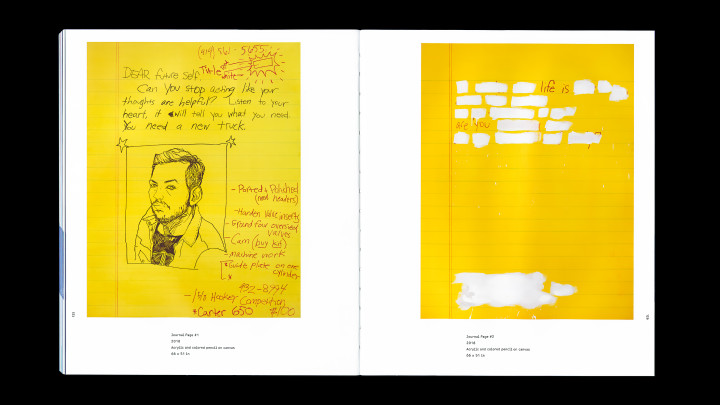 (619) 561-5655
DEAR future self,
Title
write
Can you stop acting like your
thoughts are helpful? Listen to your
heart, it will tell you what you need.
You need a new truck.
- Ported & Polished
(need headers)
- Harden valve inserts
- Grand four oversized
valves
- Cam (buy kit)
- Machine work
* Guide plate on one
cylinder
*
- 1 5/8 Hooker Competition
*Carter 650 $100
Journal Page #1
2018
Acrylic and colored pencil on canvas
66 x 51 in
life is
are you
?
Journal Page #2
2018
Acrylic and colored pencil on canvas
66 x 51 in